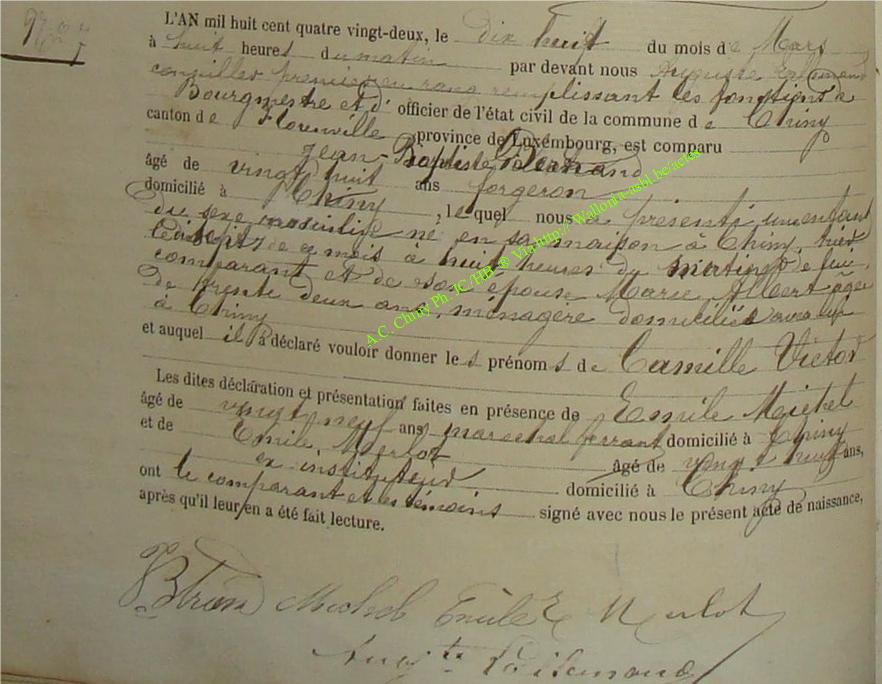 L'AN mil huit cent quatre vingt-deux, le dix huit du mois de Mars
à huit heures du matin par devant nous Auguste Lallemand
conseiller premier en rang remplissant les fonctions de
Bourgmestre et d' officier de l'état civil de la commune de Chiny
canton de Florenville province de Luxembourg, est comparu
Jean-Baptiste
âgé de vingt huit ans forgeron
domicilié à Chiny, lequel nous a présenté un enfant
du sexe masculin né en sa maison à Chiny, hier
dix sept de ce mois à huit heures du matin de lui
comparant et de son épouse Marie Albert âgée
de trente deux ans, ménagère domiciliée avec lui
à Chiny
et auquel il a déclaré vouloir donner les prénoms de Camille Victor
Les dites déclaration et présentation faites en présence de Emile Michel
âgé de vingt neuf ans marechal ferrant domicilié à Chiny
et de Emile Merlot âgé de vingt huit ans,
ex instituteur domicilié à Chiny
ont le comparant et les témoins signé avec nous le présent acte de naissance,
après qu'il leur en a été fait lecture.
Michel Emile E Merlot
Aug.te Lallemand
A.C. Chiny Ph. JC/HB ® Via http:// Wallonia-asbl.be/actes